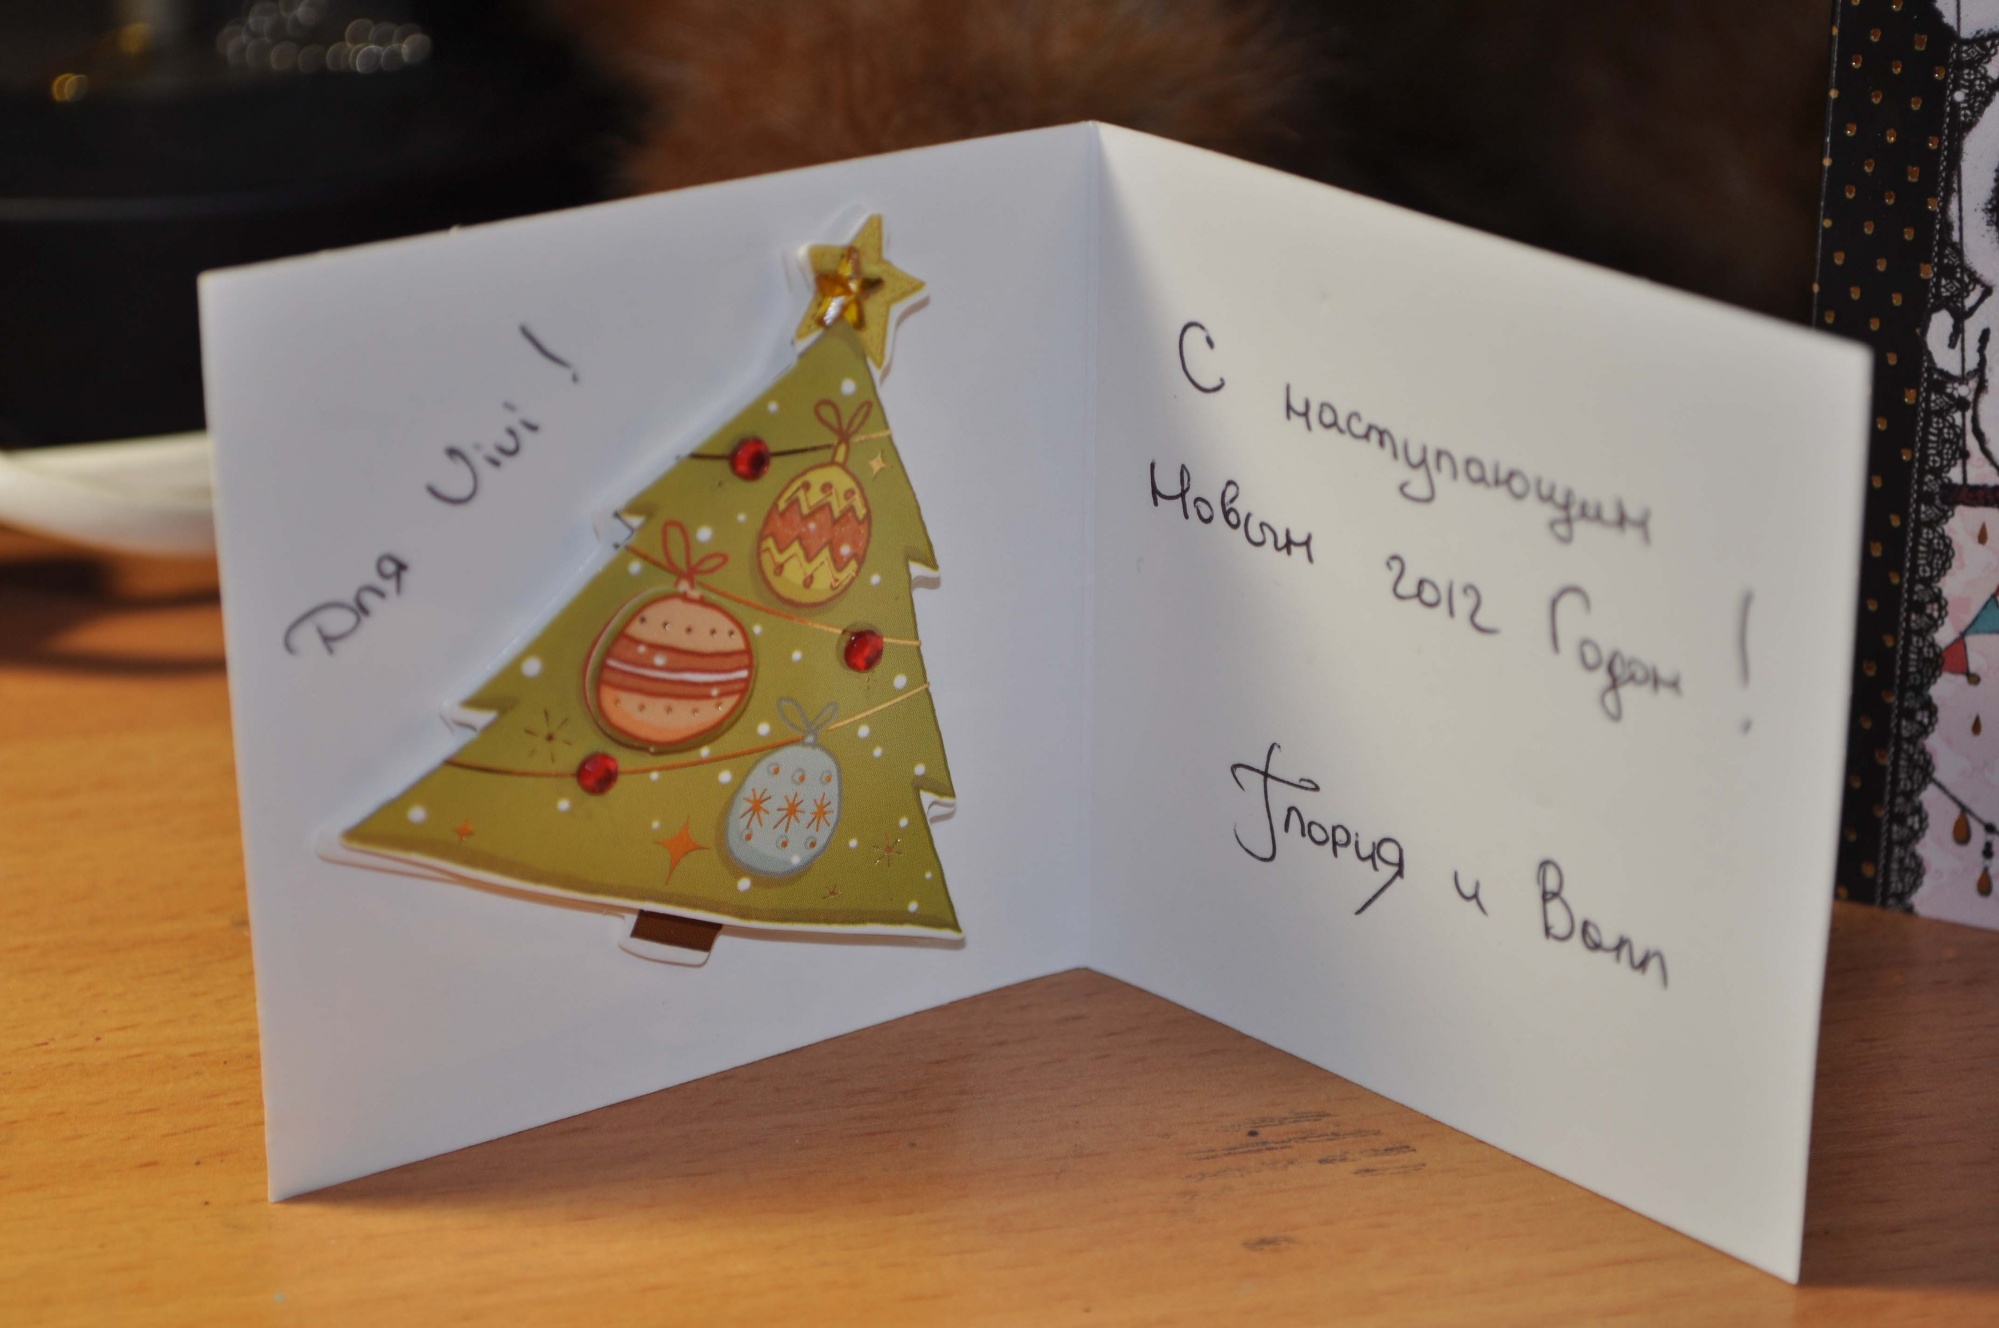 Для Vivi!
С наступающим
Новым 2012 Годом!
Глория и Волл